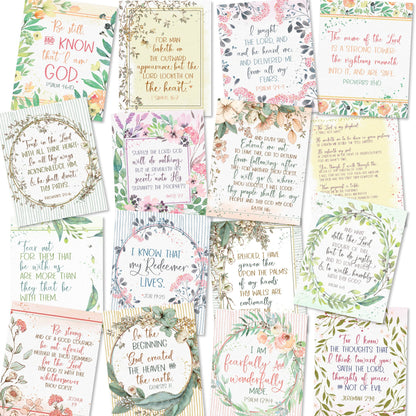 Be still
AND KNOW
that I am
GOD.
PSALM 46:10
FOR MAN
looketh ON THE
OUTWARD
appearance, but THE
LORD LOOKETH ON
the heart.
1 SAMUEL 16:7
I sought
THE LORD, AND
and he heard me,
AND DELIVERED ME
from all my
FEARS.
PSALM 34:4
The name of the Lord
IS A STRONG TOWER:
the righteous runneth
INTO IT, AND IS SAFE.
PROVERBS 18:10
Trust in the Lord
WITH ALL THINE HEART.
In all thy ways
ACKNOWLEDGE HIM,
& he shall direct
THY PATHS.
PROVERBS 3:5-6
SURELY THE LORD GOD
will do nothing,
BUT HE REVEALETH HIS
secret unto His
SERVANTS THE PROPHETS.
AMOS 3:7
AND RUTH SAID,
Entreat me not
TO LEAVE THEE, OR TO RETURN
from following after
thee: FOR WHITHER THOU GOEST,
I WILL GO; AND where
thou lodgest, I WILL LODGE:
thy people shall be my
PEOPLE, AND THY GOD MY GOD.
RUTH 1:16
The Lord is my shepherd;
Fear not:
FOR THEY THAT
be with us
ARE MORE THAN
they that be
WITH THEM.
I KNOW THAT
my Redeemer
LIVES.
JOB 19:25
BEHOLD, I HAVE
graven thee
UPON THE PALMS
of my hands;
THY WALLS ARE
continually
AND WHAT
doth the Lord
REQUIRE OF THEE,
but to do justly,
& to walk humbly
Be strong
AND OF A GOOD COURAGE;
be not afraid,
NEITHER BE THOU DISMAYED:
for the Lord
THY GOD IS WITH THEE
whithersoever
THOU GOEST.
JOSHUA
1:9
In the
BEGINNING
God created
THE HEAVEN AND
the earth.
GENESIS 1:1
I AM
fearfully &
wonderfully
MADE.
PSALM 139:14
For I know
THE THOUGHTS THAT
I think toward you,
SAITH THE LORD,
thoughts of peace,
AND NOT OF EVIL
JEREMIAH 29:11